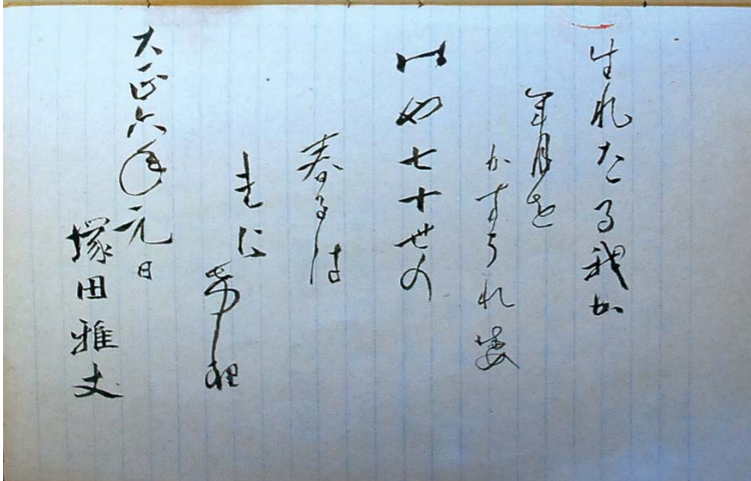 生れたる我か
年月を
かすうれ婆
はや七十世の
春るは
きに
希里
大正六年元日
塚田雅丈